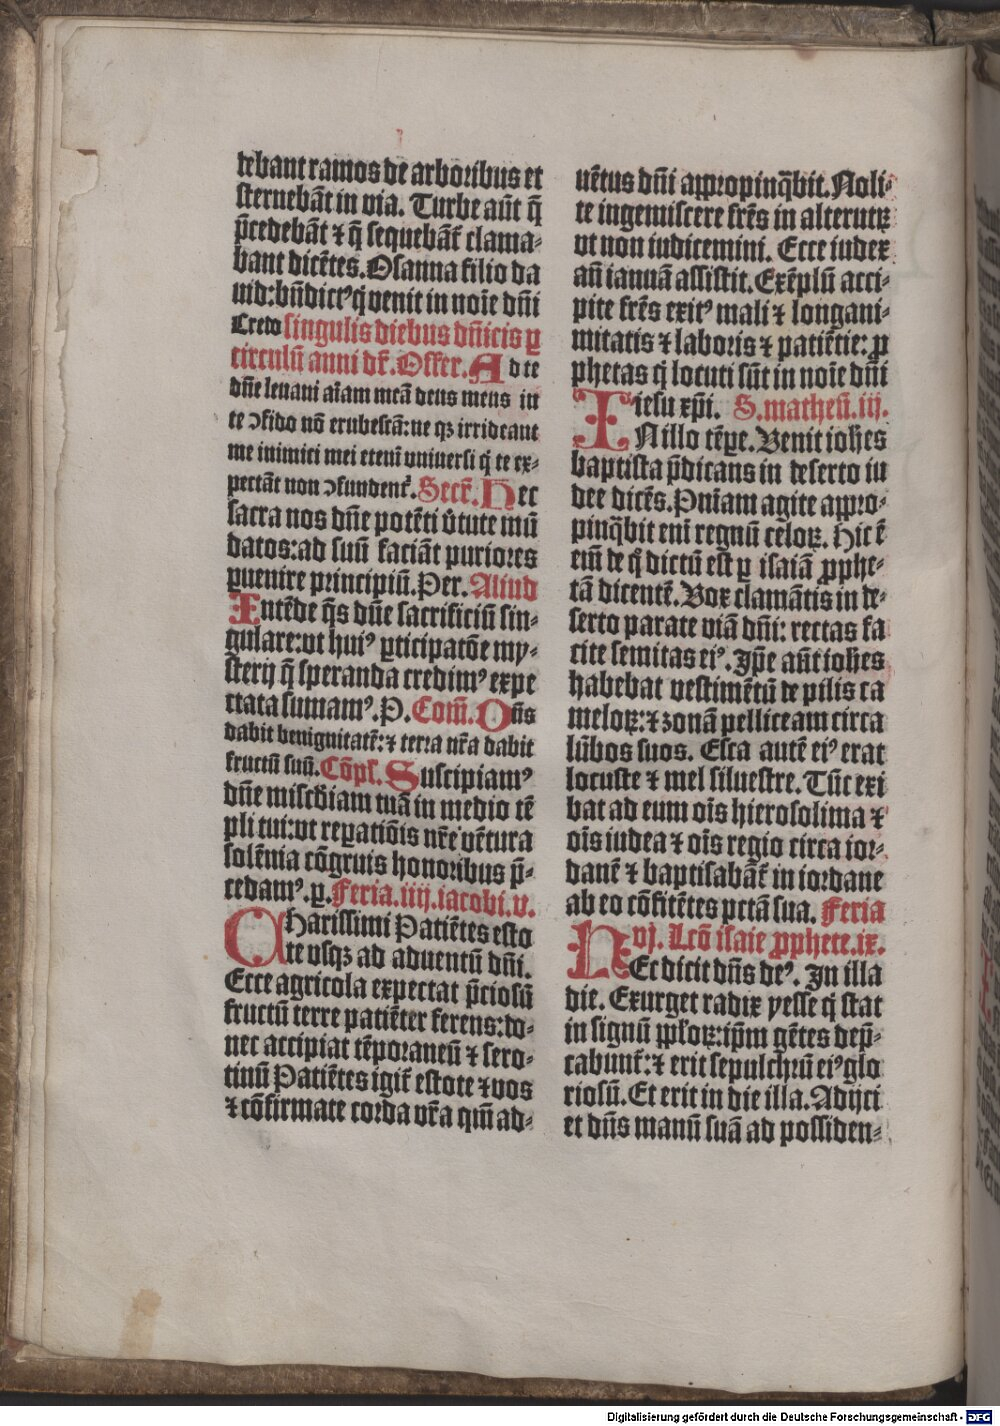 debant ramos de arboribus et
sternebāt in via. Turbe aūt q̄
p̄cedebāt ⁊ q̄ sequebāt̄ clama⸗
bant dicētes. Osanna filio da
uid: bn̄dictꝰ q̇ venit in noīe dn̄i
Credo singulis diebus dn̄icis ꝑ
circulū anni dr̄. Offer. Ad te
dn̄e leuaui aīam meā deus meus in
te ↄfido nō erubescā: ne qꝫ irrideant
me inimici mei etenī vniuersi q̇ te ex⸗
pectāt non ↄfundent̄. Secr̄. Hec
sacra nos dn̄e potēti v̄tute mū
datos: ad suū faciāt puriores
ꝑuenire principiū. Per. Aliud
Intēde q̄s dn̄e sacrificiū sin⸗
gulare: vt huiꝰ ꝑticipatōe my⸗
sterij q̄ speranda credimꝰ expe
ctata sumamꝰ. P. Com̄. Dn̄s
dabit benignitatē: ⁊ terra nr̄a dabit
fructū suū. Cōpl. Suscipiamꝰ
dn̄e miscdiam tuā in medio tē
pli tui: vt reꝑatiōis nr̄e vētura
solēnia cōgruis honoribus p̄⸗
cedamꝰ. ꝑ. Feria. iiij. iacobi. v.
Charissimi Patiētes esto
te vsqꝫ ad aduentū dn̄i.
Ecce agricola expectat p̄ciosū
fructū terre patiēter ferens: do⸗
nec accipiat tēporaneū ⁊ sero⸗
tinū Patiētes igit̄ estote ⁊ vos
⁊ cōfirmate corda vr̄a qm̄ ad⸗
uētus dn̄i appropinq̄bit. Noli⸗
te ingemiscere fr̄es in alterutꝝ
vt non iudicemini. Ecce iudex
an̄ ianuā assistit. Exēplū acci⸗
pite fr̄es exitꝰ mali ⁊ longani⸗
mitatis ⁊ laboris ⁊ patiētie: ꝓ
phetas q̇ locuti sūt in noīe dn̄i
iesu xp̄i. S. matheū. iij.
IN illo tēꝑe. Venit ioh̄es
baptista p̄dicans in deserto iu
dee dicēs. Pn̄iam agite appro⸗
pinq̄bit enī regnū celoꝝ. Hic ē
eīn de q̊ dictū est ꝑ isaiā ꝓphe⸗
tā dicentē. Vox clamātis in de⸗
serto parate viā dn̄i: rectas fa
cite semitas eiꝰ. Ip̄e aūt ioh̄es
habebat vestimētū de pilis ca
meloꝝ: ⁊ zonā pelliceam circa
lūbos suos. Esca autē eiꝰ erat
locuste ⁊ mel siluestre. Tūc exi
bat ad eum oīs hierosolima ⁊
oīs iudea ⁊ oīs regio circa ior⸗
danē ⁊ baptisabāt̄ in iordane
ab eo cōfitētes pctā sua. Feria
vj. Lcō isaie ꝓphete. ix.
HEc dicit dn̄s deꝰ. In illa
die. Exurget radix yesse q̇ stat
in signū pploꝝ: ip̄m gētes dep̄⸗
cabunt̄: ⁊ erit sepulchrū eiꝰ glo
riosū. Et erit in die illa. Adijci
et dn̄s manū suā ad possiden⸗
Digitalisierung gefördert durch die Deutsche Forschungsgemeinschaft - DFG